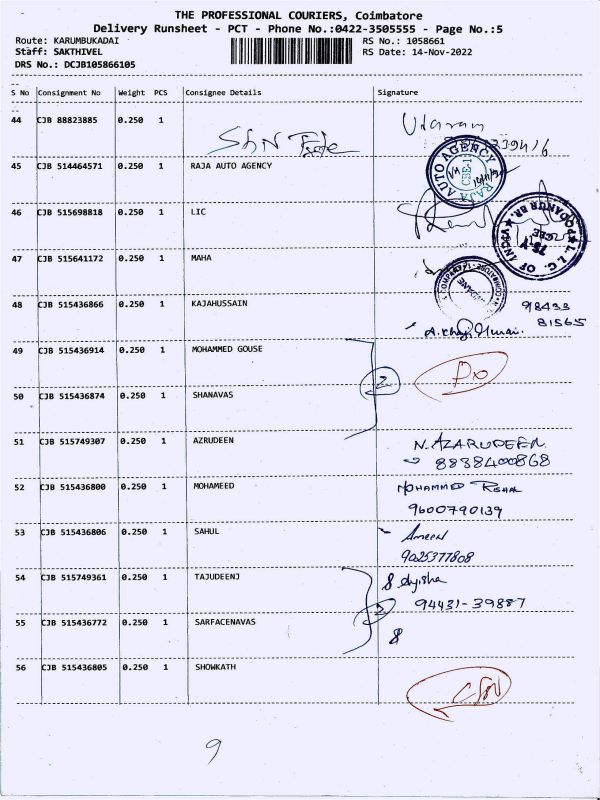 THE PROFESSIONAL COURIERS, Coimbatore
Delivery Runsheet - PCT - Phone No.:0422-3505555 - Page No.:5
Route: KARUMBUKADAI RS No.: 1058661
Staff: SAKTHIVEL RS Date: 14-Nov-2022
DRS No.: DCJB105866105
S No Consignment No Weight PCS Consignee Details Signature
44 CJB 88823885 0.250 1
45 CJB 514464571 0.250 1 RAJA AUTO AGENCY
RAJA AUTO AGENCY CBE-1
46 CJB 515698818 0.250 1 LIC
L.I.C. OF INDIA
47 CJB 515641172 0.250 1 MAHA
48 CJB 515436866 0.250 1 KAJAHUSSAIN 98433
81565
49 CJB 515436914 0.250 1 MOHAMMED GOUSE
2
50 CJB 515436874 0.250 1 SHANAVAS
51 CJB 515749307 0.250 1 AZRUDEEN N. AZARUDEEN
8838400868
52 CJB 515436800 0.250 1 MOHAMEED MOHAMMED
9600790139
53 CJB 515436806 0.250 1 SAHUL Ameen
9025377808
54 CJB 515749361 0.250 1 TAJUDEENJ
94431-39887
2
55 CJB 515436772 0.250 1 SARFACENAVAS
56 CJB 515436805 0.250 1 SHOWKATH
9